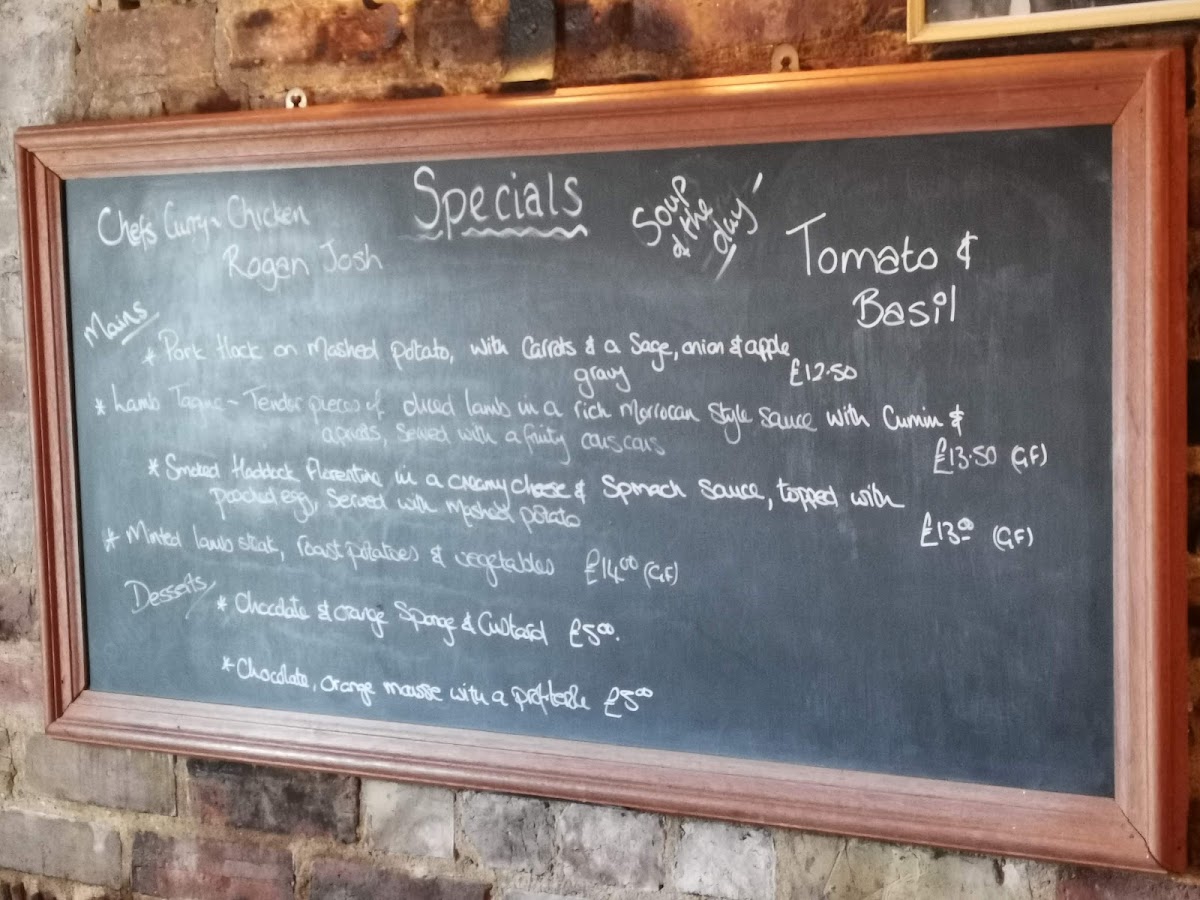 Specials
Chefs Curry - Chicken
Rogan Josh
Soup
of the
day
Tomato &
Basil
Mains
* Pork Hock on Mashed potato, with Carrots & a Sage, onion & apple
gravy £12.50
* Lamb Tagine - Tender pieces of diced lamb in a rich Morrocan Style Sauce with Cumin &
apricots, Served with a fruity couscous
£13.50 (GF)
* Smoked Haddock Florentine in a creamy cheese & Spinach Sauce, topped with
poached egg, Served with Mashed potato
£13.00 (GF)
* Minted lamb steak, roast potatoes & vegetables £14.00 (GF)
Desserts
* Chocolate & orange Sponge & Custard £5.00.
* Chocolate, orange mousse with a profiterole £5.00